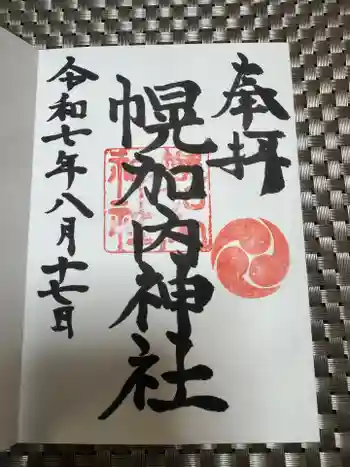 奉拝
幌加内神社
令和七年八月十七日